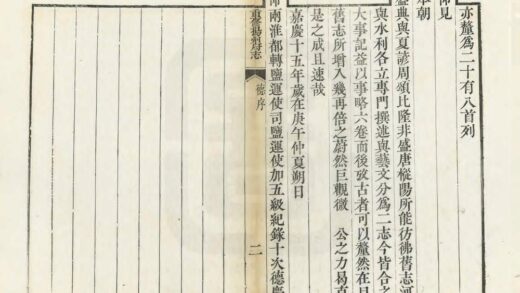 亦釐爲二十有八首列
仰見
本朝
盛典與夏諺周頌比隆非盛唐樅陽所能彷彿舊志河
與水利各立專門撰述與藝文分爲二志今皆合之
大事記益以事略六卷而後攷古者可以釐然在目
舊志所增入幾再倍之蔚然巨觀微　公之力曷克
是之成且速哉
嘉慶十五年歲在庚午仲夏朔日
兩淮都轉鹽運使司鹽運使加五級紀錄十次德慶
重修揚州府志
德序
二